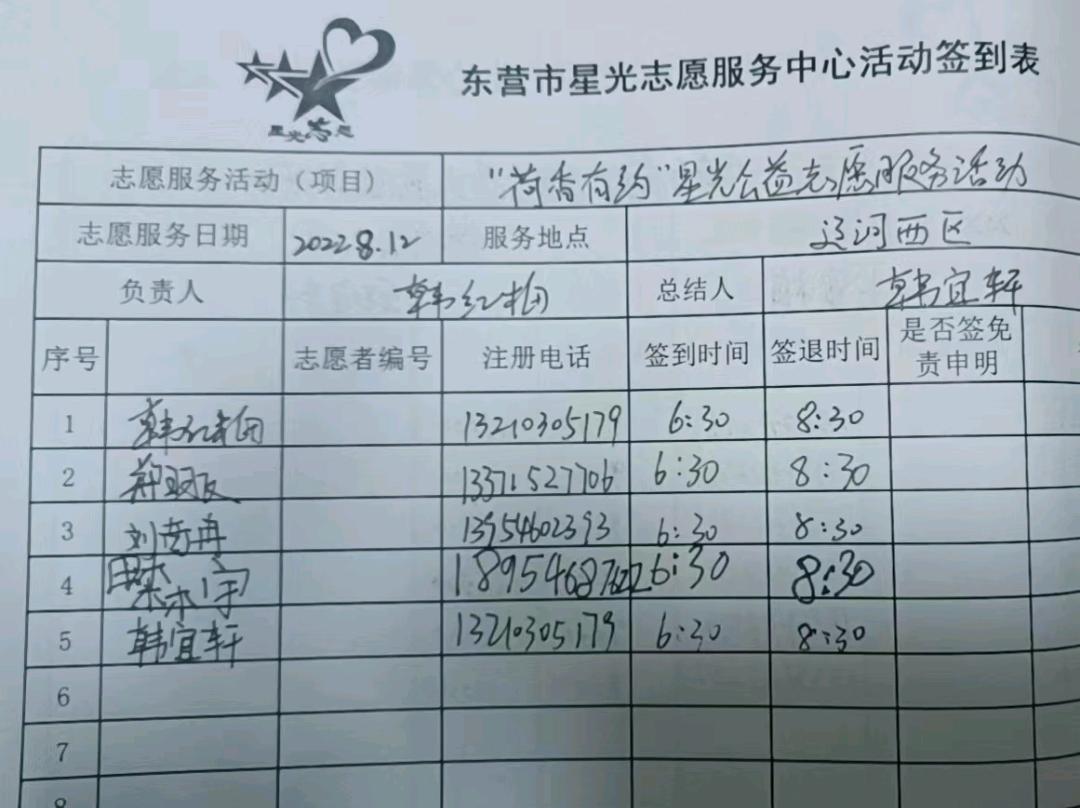 星光志愿
东营市星光志愿服务中心活动签到表
志愿服务活动（项目） “荷香有约”星光公益志愿服务活动
志愿服务日期 2022 8.12 服务地点 辽河西区
负责人 韩红梅 总结人 韩宜轩
序号 志愿者编号 注册电话 签到时间 签退时间 是否签免责申明
1 韩红梅 13210305179 6:30 8:30
2 13371527706 6:30 8:30
3 13954602393 6:30 8:30
4 6:30 8:30
5 韩宜轩 13210305179 6:30 8:30
6
7
8